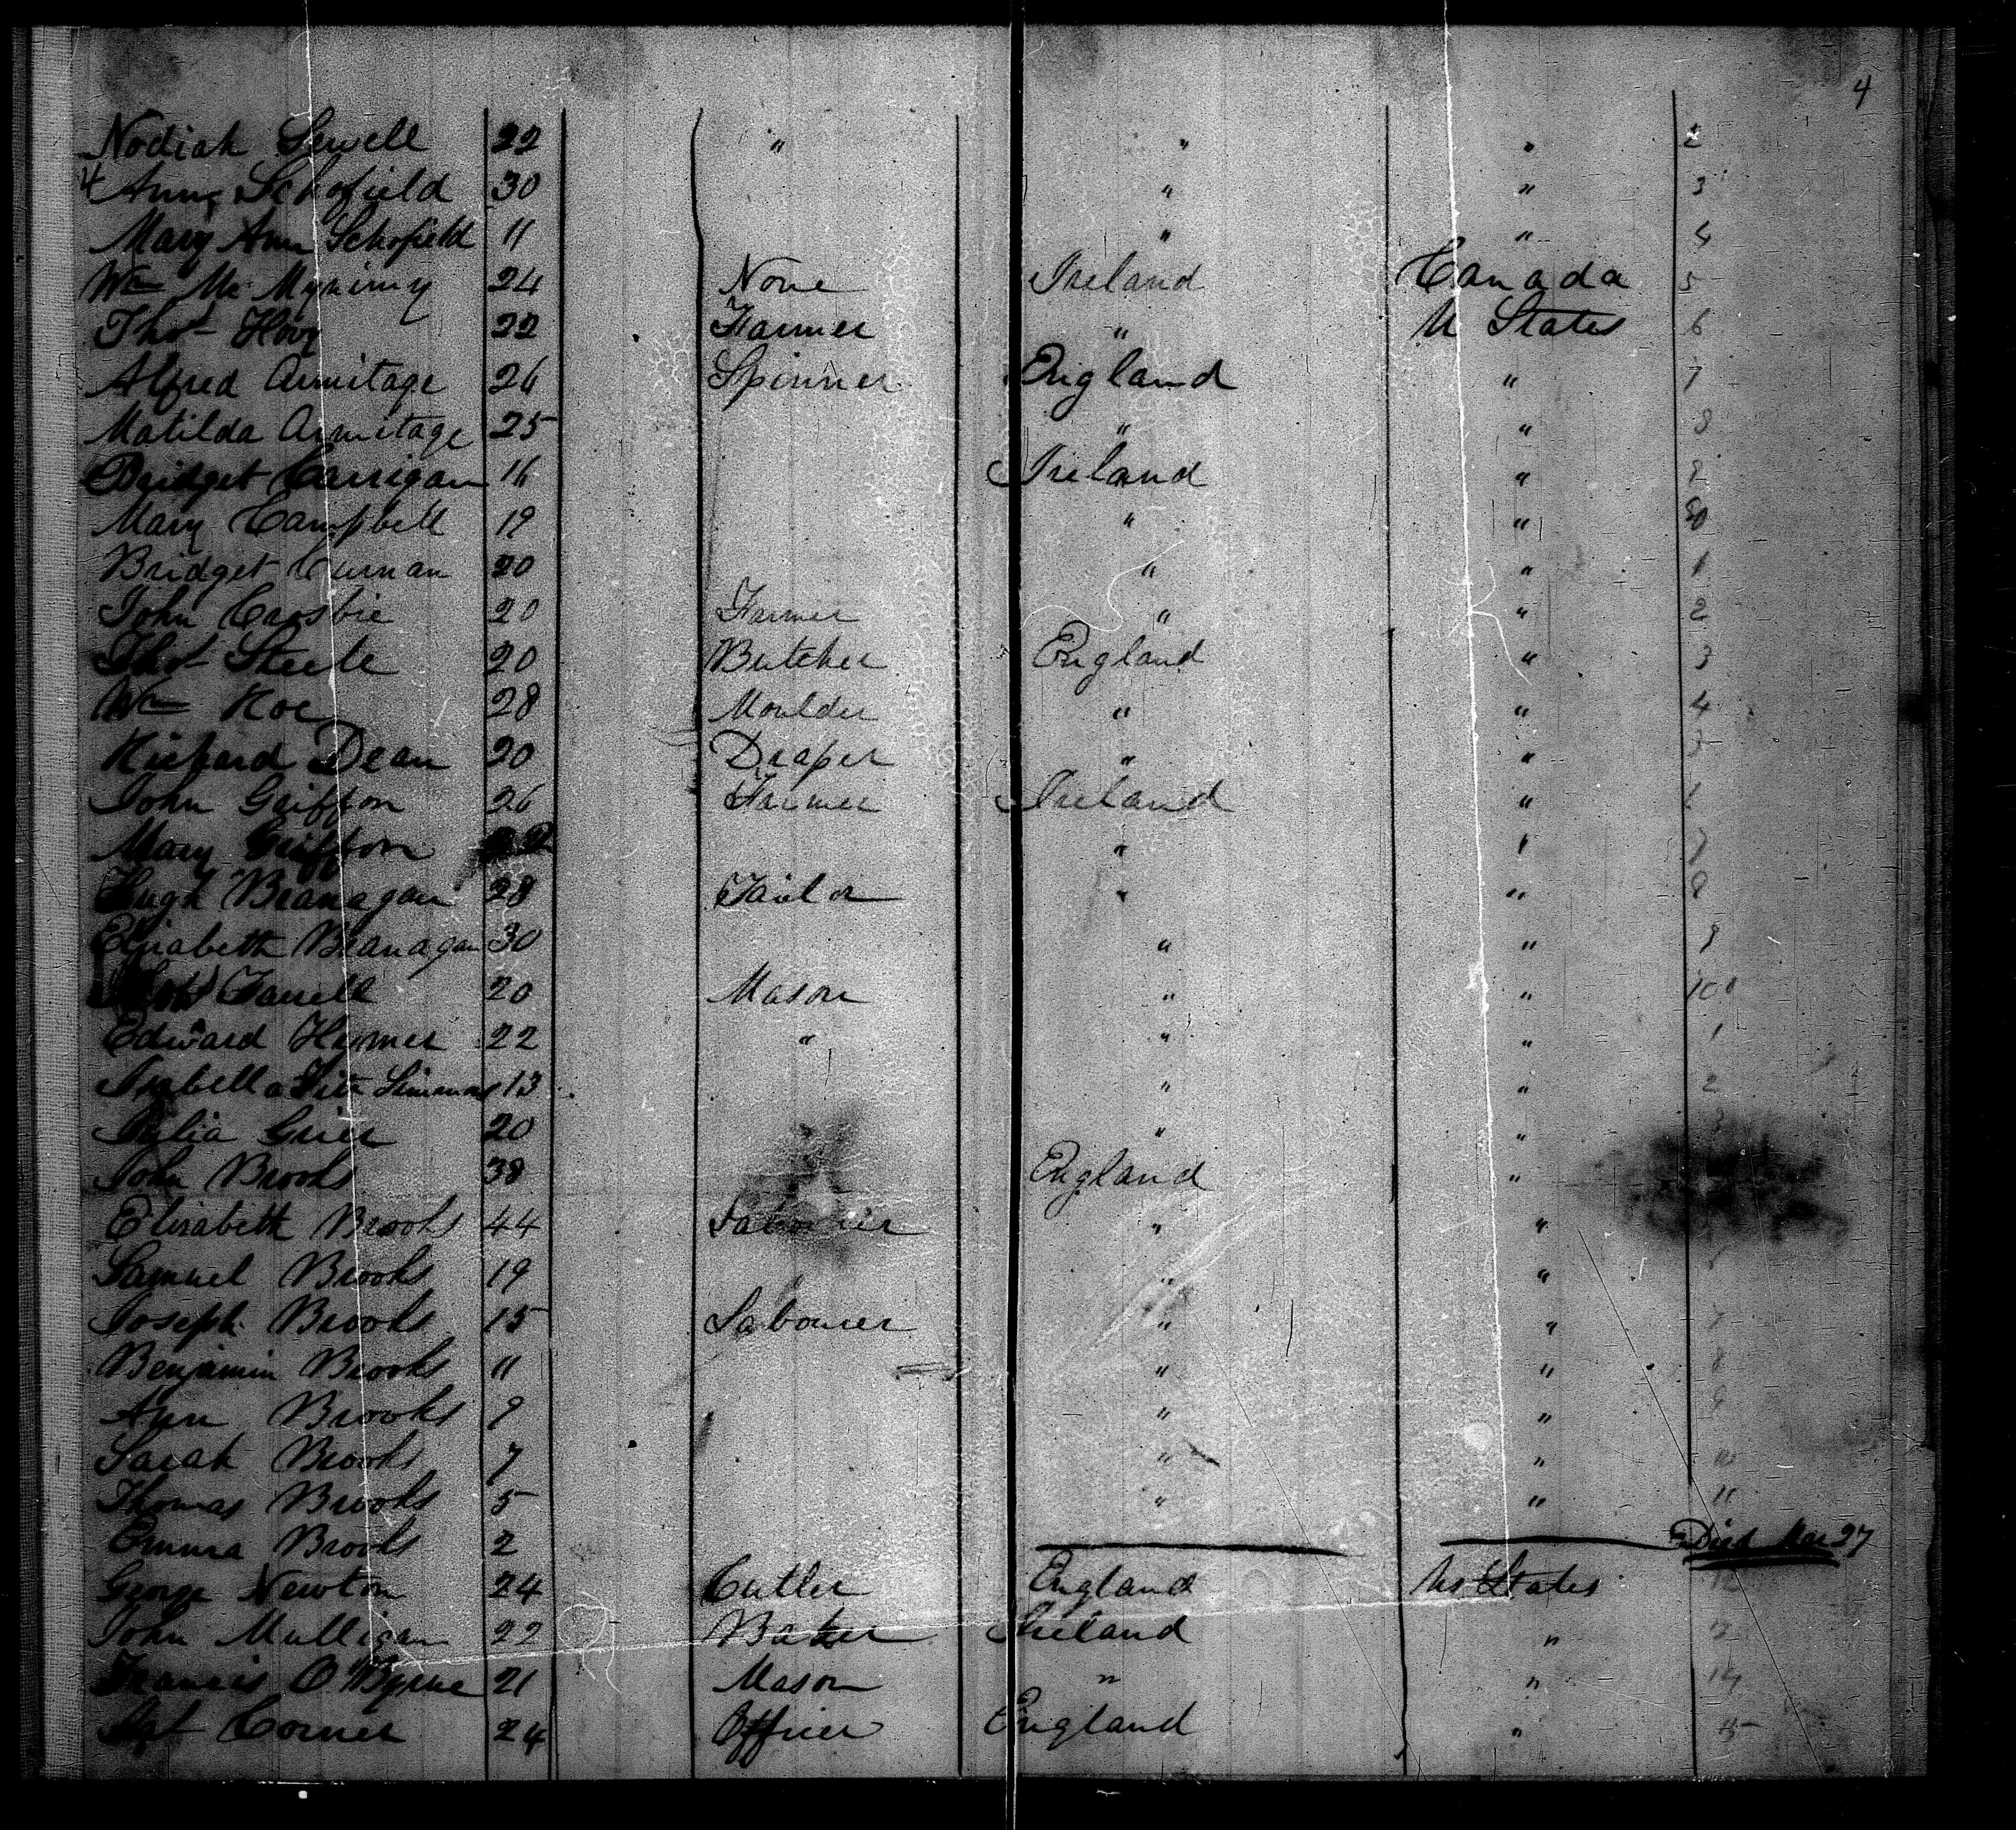 4
Nodiah Sewell 22 " " " 2
4 Ann Schofield 30 " " 3
Mary Ann Schofield 11 " " 4
Wm Mc 24 None Ireland Canada 5
Thos 22 Farmer " U States 6
Alfred Armitage 26 Spinner England " 7
Matilda Armitage 25 " " 8
Bridget Carrigan 16 Ireland "
Mary Campbell 19 " "
Bridget Curnan 20 " " 1
John Crosbie 20 Farmer " " 2
Thos Steele 20 Butcher England " 3
Wm 28 Moulder " " 4
Richard Dean 20 Draper " "
John Griffon 26 Farmer Ireland "
Mary Griffon " "
Hugh Branagan 28 Tailor " " 8
Elisabeth Branagan 30 " " 9
Farrell 20 Mason " " 10
Edward 22 " " " 1
Isabella Fitz Simmons 13 " " 2
Julia Grier 20 " "
John Brooks 38 England "
Elisabeth Brooks 44 Labourer " "
Samuel Brooks 19 " "
Joseph Brooks 15 Labourer " " 7
Benjamin Brooks 11 " " 8
Ann Brooks 9 " " 9
Sarah Brooks 7 " " 10
Thomas Brooks 5 " " 11
Emma Brooks 2 Died Mar 27
George Newton 24 Cutler England U States 12
John Mulligan 22 Baker Ireland "
Francis O'Byrne 21 Mason " " 14
Corner 24 Officer England " 15